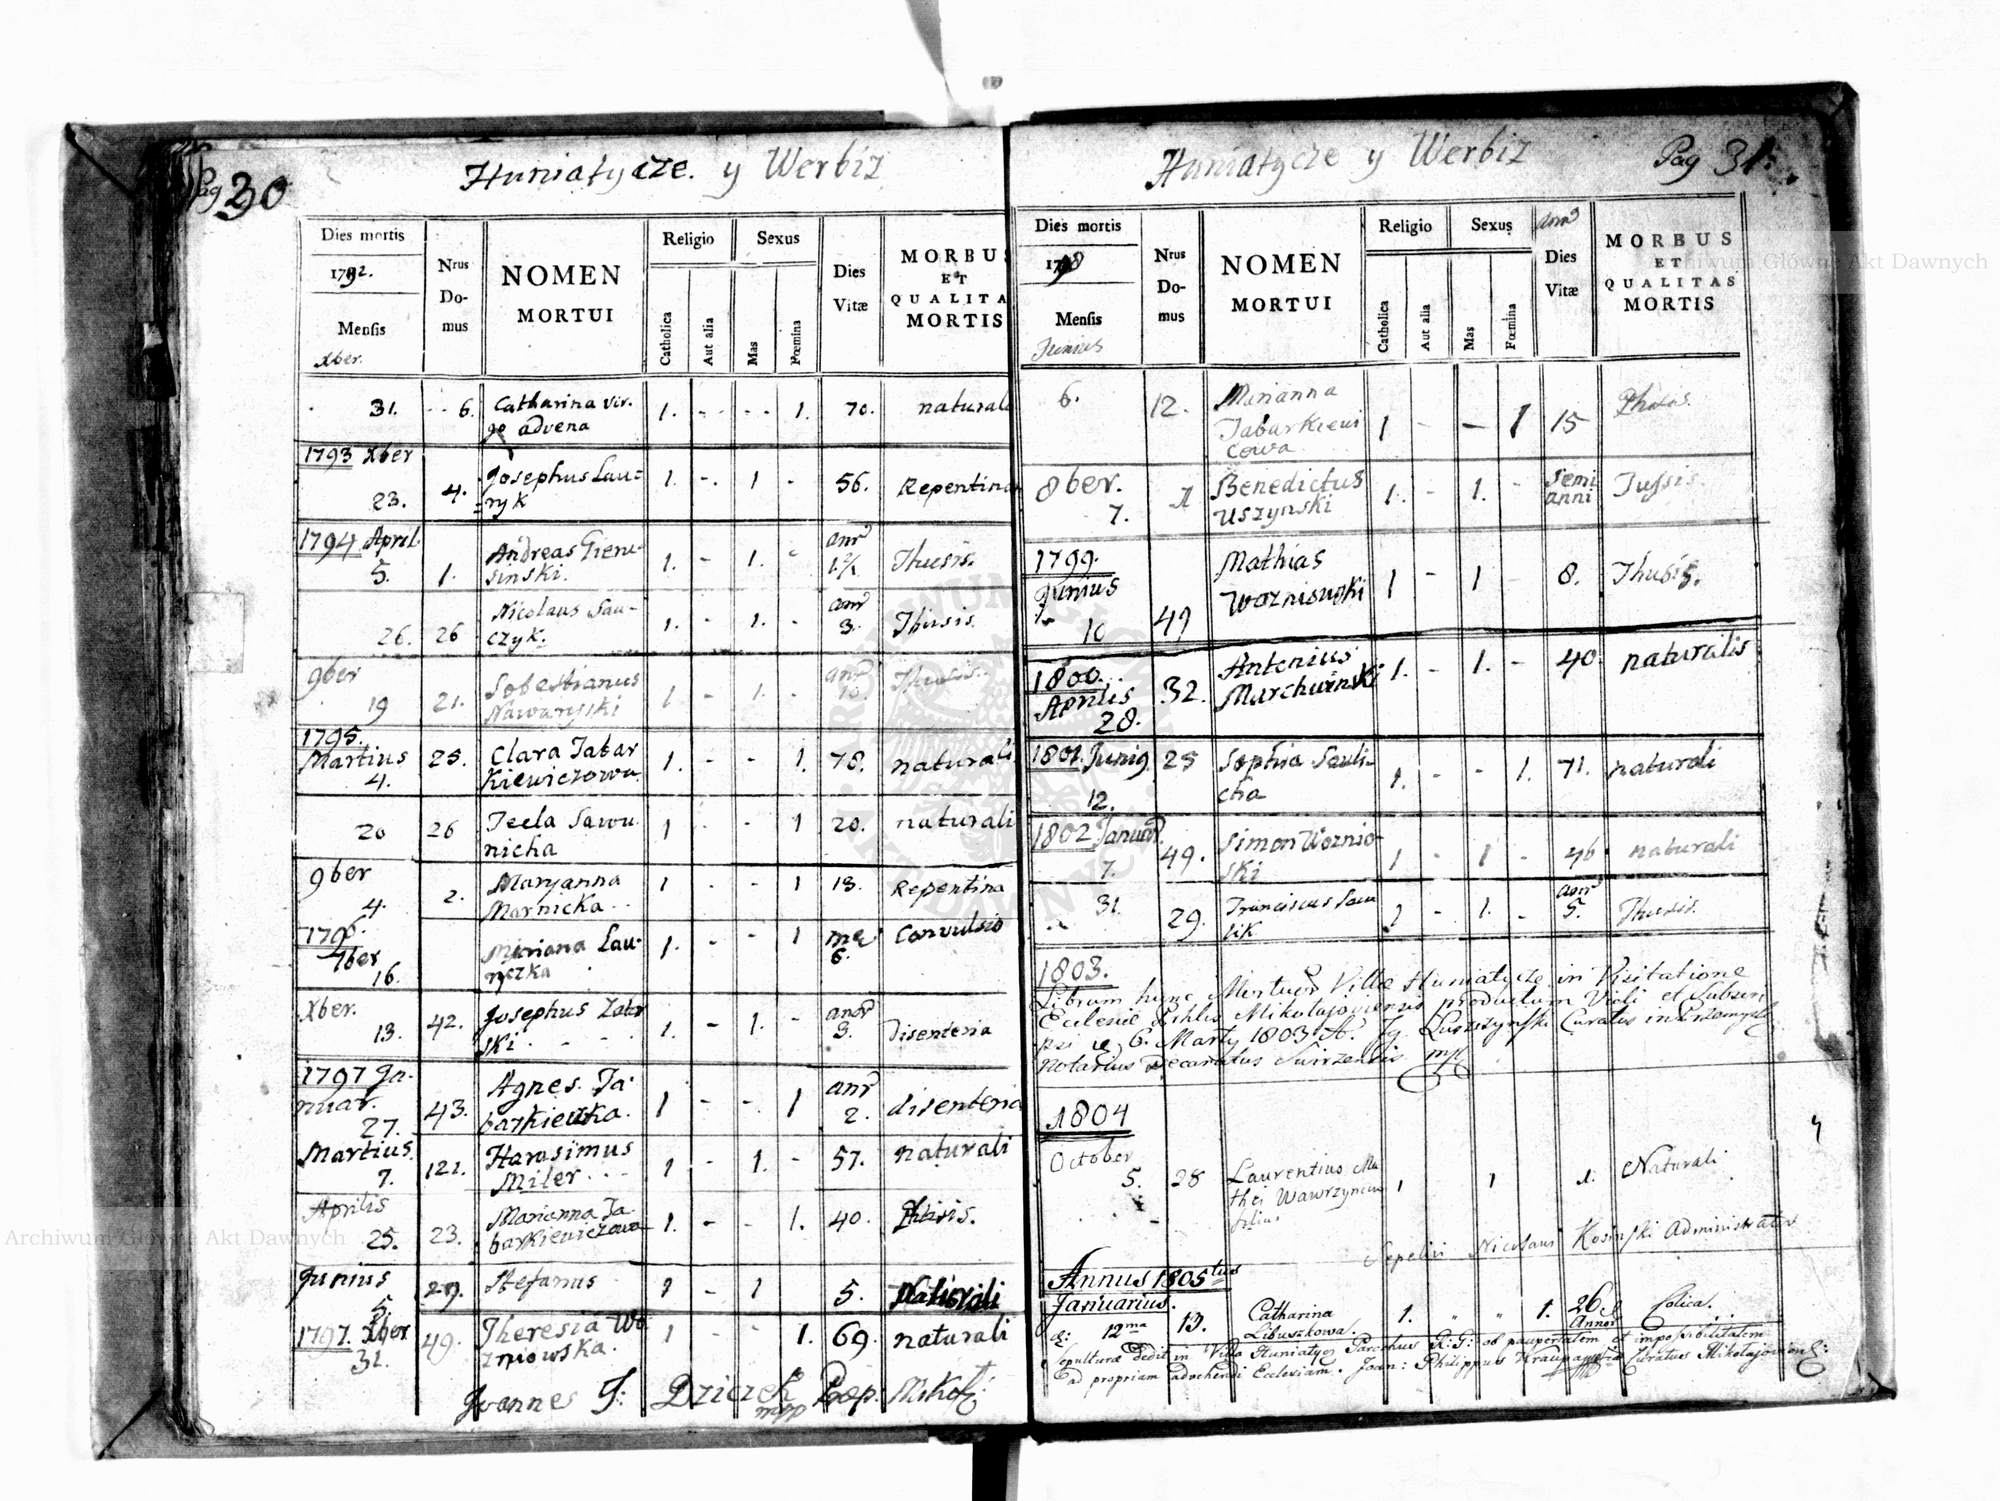 Pag 30
Huniatycze. y Werbiz
Dies mortis
1792.
Mensis
Xber.
Nrus
Do-
mus
NOMEN
MORTUI
Religio
Catholica
Aut alia
Sexus
Mas
Fœmina
Dies
Vitæ
MORBUS
ET
QUALITA
MORTIS
31. 6. Catharina vir- 1. - - - - 1. 70. natural
go advena
1793 Xber
23. 4. Josephus Lau- 1. - 1 - 56. Repentina
ryk
1794 April
5. 1. Andreas 1. - 1. - Thisis.
sinski.
26. 26 Nicolaus Sau- 1. - 1. - 3. Thisis.
czyk.
9ber
19 21. Sobestianus 1 - 1. - 10. Thisis.
Nawaryski
1795.
Martius 25. Clara Jabar 1. - - 1. 78. naturali
4. kiewiczowa
20 26 Tecla Sawu 1 - - 1 20. naturali
nicha
9ber
4. 2. Maryanna 1 - - 1 13. Repentina
Marnicka
1796.
7ber
16. Mariana Lau- 1. - - 1 6. Convulsio
ryczka
Xber.
13. 42. Josephus Zator 1. - 1. - 3. Disenteria
ski
1797 Ja-
nuar.
27. 43. Agnes Ja- 1 - - 1 2. disenteria
barkiewka.
Martius.
7. 121. Harasimus 1 - 1. - 57. naturali
Miler
Aprilis
25. 23. Marianna Ja 1. - - 1. 40. Phtisis.
barkiewiczowa
Junius
5. 29. Stefanus 1 - 1 5. Naturali
1797. Xber
31. 49. Theresia Wo 1 1. 69. naturali
zniowska.
Joannes J: Dziczek mpp Mikoł:
Huniatycze y Werbiz
Pag 31.
Dies mortis
1798
Mensis
Junius
Nrus
Do-
mus
NOMEN
MORTUI
Religio
Catholica
Aut alia
Sexus
Mas
Fœmina
Dies
Vitæ
MORBUS
ET
QUALITAS
MORTIS
6. 12. Marianna
Jabarkiewi 1 - - 1 15
cowa
8ber.
7. Benedictus 1. - 1. - Semi anni Tussis.
Uszynski
1799.
Junius
10 49 Mathias 1 - 1 - 8. Thisis.
Wozniowski
1800.
Aprilis
28. 32. Antonius 1. - 1. - 40. naturalis
Marchwinski
1801. Junig
12. 25 Sophia Sauli- 1. - - 1. 71. naturali
cha
1802 Januar
7. 49. Simon Woznio- 1 - 1 - 46 naturali
ski
31. 29. Franciscus Sau 1 - 1. - 5. Thisis.
lik
1803.
Librum hunc Mortuor Villæ Huniatycze in Visitatione
Ecclesiæ Mikołajoviensis productum Vidi et Subscri
psi 6. Marty 1803 A. Ig. Curatus in
Notarius Decanatus Swirzensis mp
1804
October
5. 28 Laurentius Ma 1 1 1. Naturali
thei Wawrzyncow
filius
Sepelivi Nicolaus Kosinski Administrator
Annus 1805tus
Januarius.
12ma 13. Catharina 1. " " 1. 26 Annor Colica.
Libuszkowa.
Sepulturæ dedit in Villa Huniatyce Parochus R:G: ob paupertatem et impossibilitatem
ad propriam advehendi Ecclesiam. Joan: Philippus Curatus
Archiwum Główne Akt Dawnych
Archiwum Główne Akt Dawnych